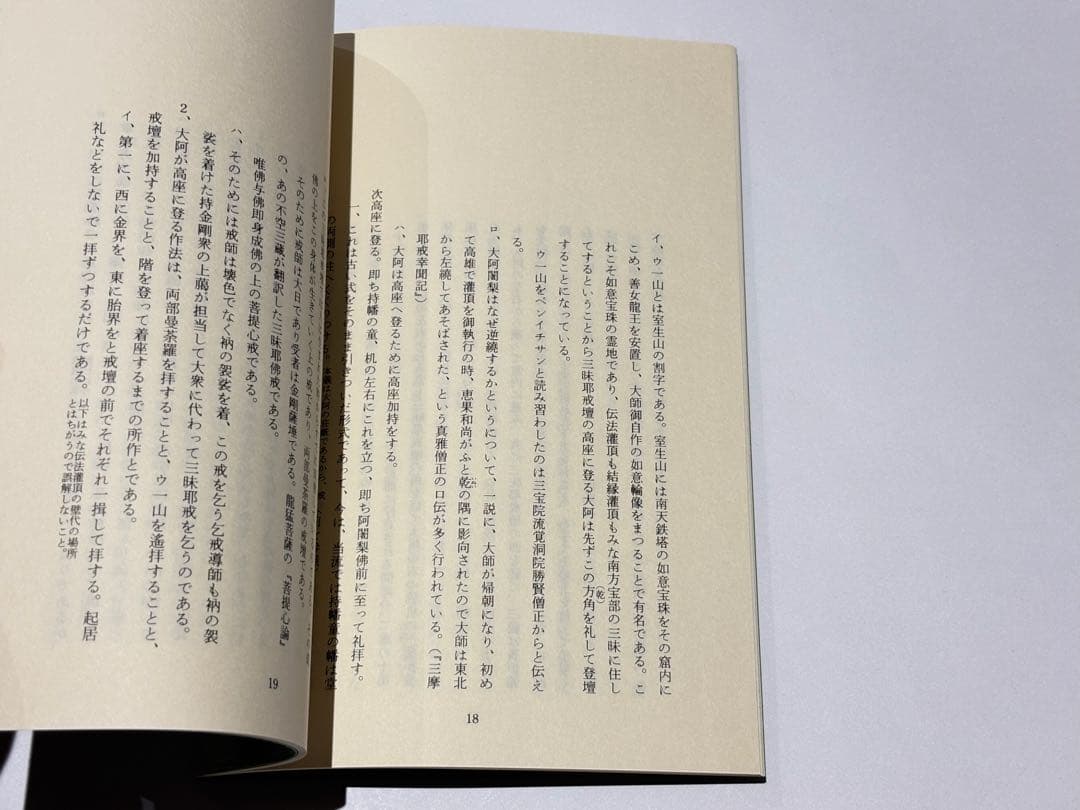 イ、ゥ一山とは室生山の割字である。室生山には南天鉄塔の如意宝珠をその窟内に
こめ、善女龍王を安置し、大師御自作の如意輪像をまつることで有名である。こ
れこそ如意宝珠の霊地であり、伝法灌頂も結縁灌頂もみな南方宝部の三昧に住し
てするということから三昧耶戒壇の高座に登る大阿は先ずこの方角を礼して登壇
(乾)
することになっている。
ゥ一山をベンイチサンと読み習わしたのは三宝院流覚洞院勝賢僧正からと伝え
る。
ロ、大阿闍梨はなぜ逆繞するかというについて、一説に、大師が帰朝になり、初め
て高雄で灌頂を御執行の時、恵果和尚がふと乾の隅に影向されたので大師は東北
から左繞してあそばされた、という真雅僧正の口伝が多く行われている。(『三摩
耶戒幸聞記』)
ハ、大阿は高座へ登るために高座加持をする。
次高座に登る。即ち持幡の童、机の左右にこれを立つ、即ち阿闍梨佛前に至って礼拝す。
一、これは古い式をそのまま引きついだ形式であって、今は、当流では持幡童の幡は堂
の両側の柱へ
僧の上をこの身体が生きていく上の戒であり、両部曼荼羅の戒壇である。
そのために戒師は大日であり受者は金剛薩埵である。龍猛菩薩の『菩提心論』
の、あの不空三蔵が翻訳した三昧耶佛戒である。
唯佛与佛即身成佛の上の菩提心戒である。
ハ、そのためには戒師は壊色でなく衲の袈裟を着、この戒を乞う乞戒導師も衲の袈
裟を着けた持金剛衆の上﨟が担当して大衆に代わって三昧耶戒を乞うのである。
2、大阿が高座に登る作法は、両部曼荼羅を拝することと、ゥ一山を遥拝することと、
戒壇を加持することと、階を登って着座するまでの所作とである。
イ、第一に、西に金界を、東に胎界をと戒壇の前でそれぞれ一揖して拝する。起居
礼などをしないで一拝ずつするだけである。
以下はみな伝法灌頂の壁代の場所
とはちがうので誤解しないこと。
19
18